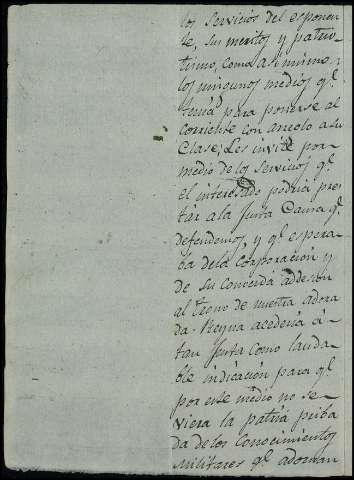 los servicios del esponen-
te, sus meritos y patrio-
tismo, como asi mismo,
los ningunos medios q.
tenia para ponerse al
corriente con areolo a su
Clase; Les invité por
medio de los servicios q.
el interesado podria pres
tar a la Justa Causa q.
defendemos, y q. espera-
ba de la Corporación y
de su Conocida addesion
al trono de nuestra adora
da Reyna acederia á
tan Justa como lauda-
ble indicación para q.
por este medio no se
viera la patria priba
da de los Conocimientos
Militares q. adornan